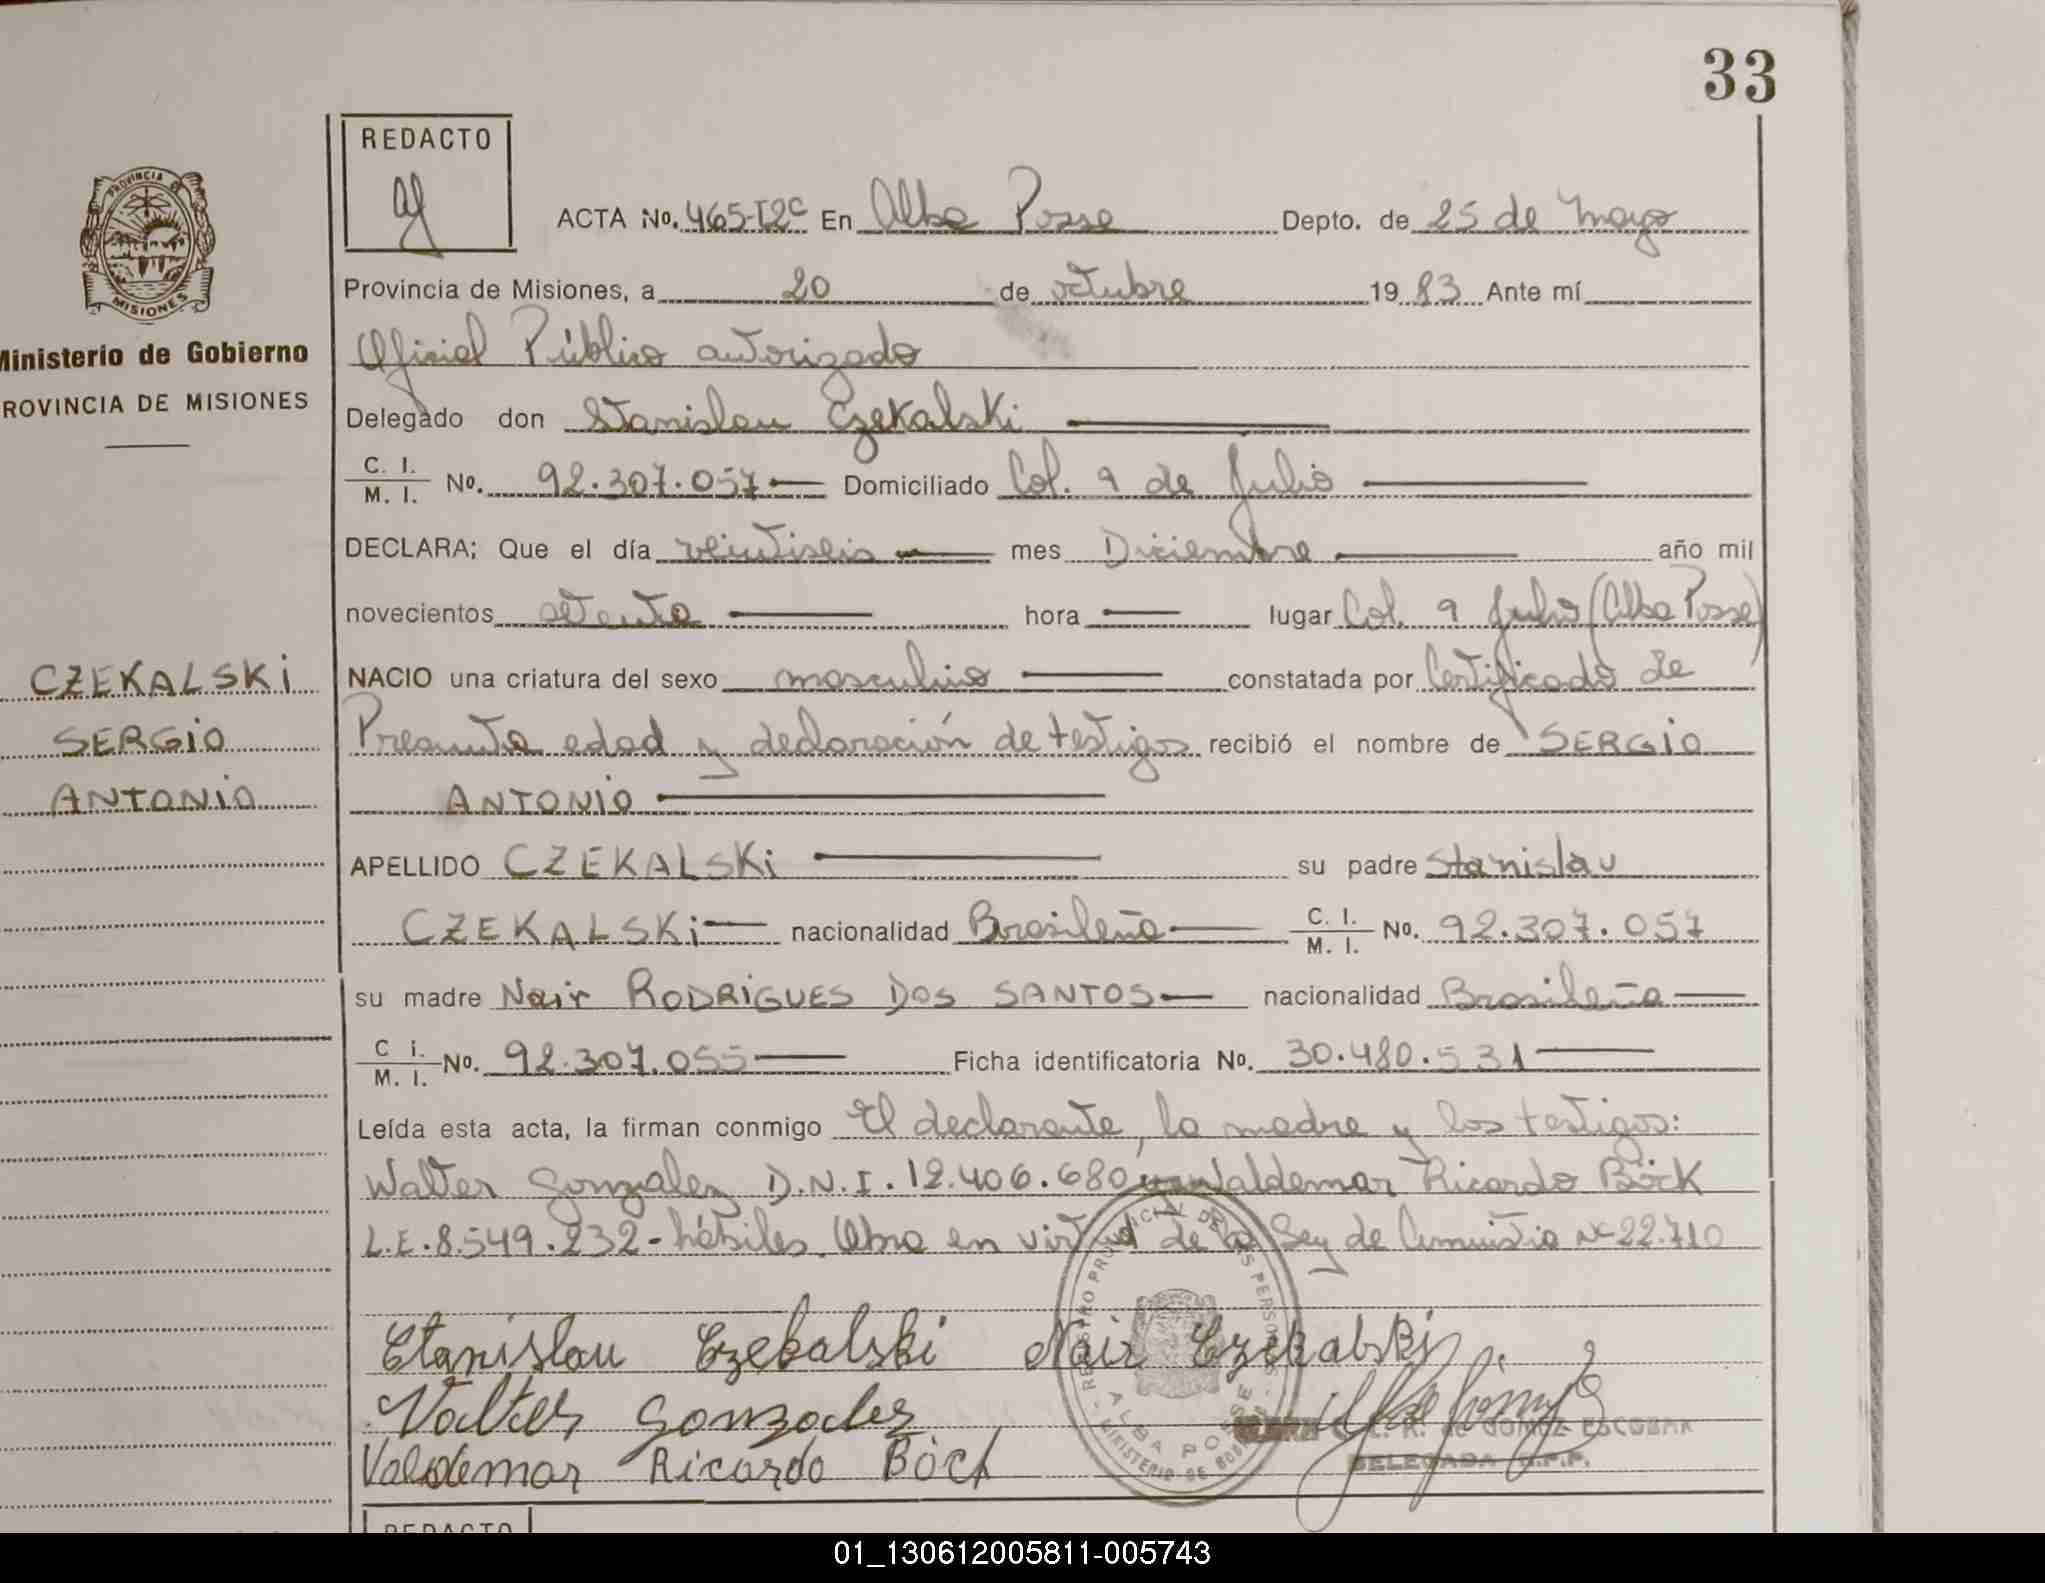 33
REDACTO
ACTA No. 465-T2º En Alba Posse Depto. de 25 de Mayo
Provincia de Misiones, a 20 de octubre 1983 Ante mí
Oficial Público autorizado
Ministerio de Gobierno
ROVINCIA DE MISIONES
Delegado don Stanislau Czekalski
C. I. / M. I. No. 92.307.057 Domiciliado Col. 9 de Julio
DECLARA; Que el día veintiseis mes Diciembre año mil
novecientos setenta hora lugar Col. 9 Julio (Alba Posse)
NACIO una criatura del sexo masculino constatada por Certificado de
Presunta edad y declaración de testigos recibió el nombre de SERGIO
ANTONIO
CZEKALSKI
SERGIO
ANTONIO
APELLIDO CZEKALSKI su padre Stanislau
CZEKALSKI nacionalidad Brasileña C. I. / M. I. No. 92.307.057
su madre Nair RODRIGUES DOS SANTOS nacionalidad Brasileña
C i. / M. I. No. 92.307.055 Ficha identificatoria No. 30.480.531
Leída esta acta, la firman conmigo El declarante, la madre y los testigos:
Walter Gonzalez D.N.I. 12.406.680 y Waldemar Ricardo Böck
L.E. 8.549.232 - hábiles. Obra en virtud de la Ley de Amnistia Nº 22.710
Stanislau Czekalski Nair Czekalski
Valter Gonzales
Valdemar Ricardo Böck
GOMEZ ESCOBAR
DELEGADA
REGISTRO PROVINCIAL DE LAS PERSONAS
ALBA POSSE
MINISTERIO DE GOB
PROVINCIA DE
MISIONES
REDACTO
01_130612005811-005743